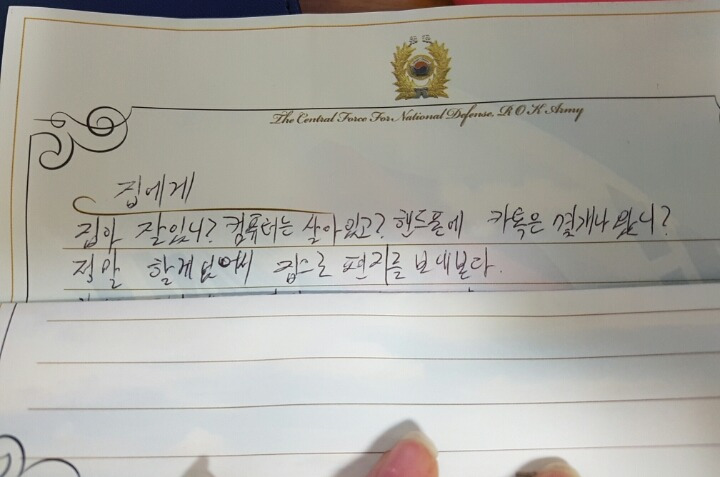 The Central Force For National Defense, R O K Army
집에게
집아 잘있니? 컴퓨터는 살아있고? 핸드폰에 카톡은 몇개나 왔니?
정말 할게없어서 집으로 편지를 보내본다.